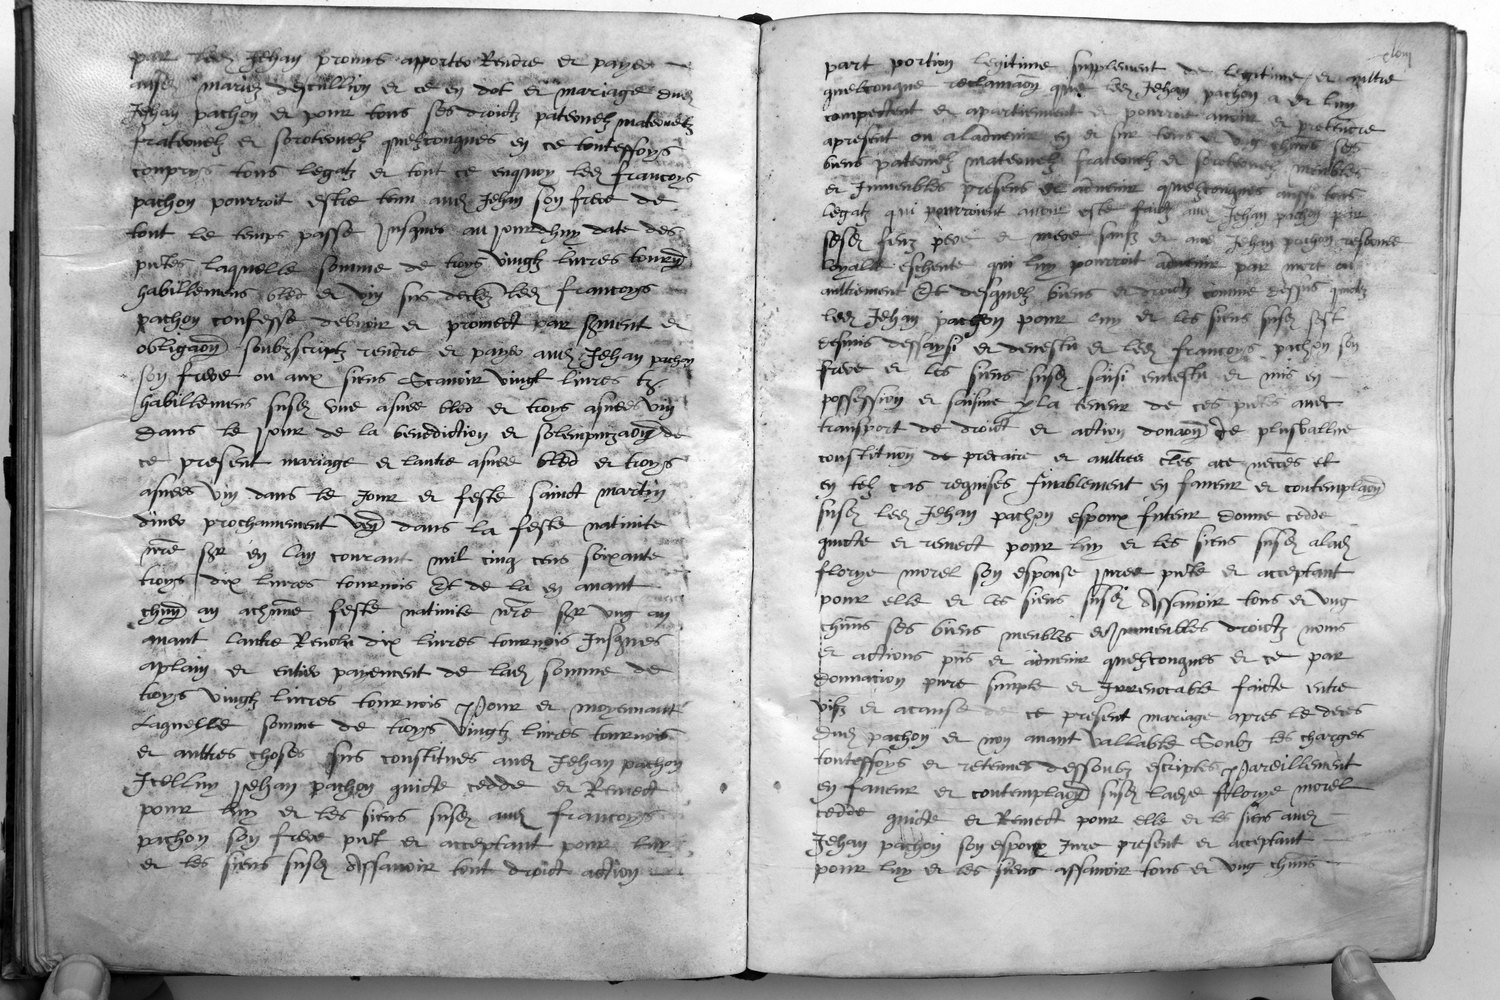 par led Jehan promis apporter Rendre et payer
ausd mariez descullion et ce en dot et mariage dud
Jehan pachon et pour tous ses droictz paternelz maternelz
fraternelz et sororenelz quelzconques en ce touteffoys
comprys tous legatz et tout ce enquoy led francoys
pachon pourroit estre tenu aud Jehan son frere de
tout le temps passe jusques au jourdhuy date des
pntes laquelle somme de troys vingtz livres tournoys
habillemens bled et vin sus declez led francoys
pachon confesse debvoir et promect par serment et
obligaon soubzscriptz rendre et payer aud Jehan pachon
son frere ou aux siens Scavoir vingt livres tz
habillemens susd une asnee bled et troys asnees vin
dans le jour de la benediction et solempnizaon de
ce present mariage et lautre asnee bled et troys
asnees vin dans le jour et feste sainct martin
diver prochainement ven dans la feste nativite
nre sgr en lan courant mil cinq cens soixante
troys dix livres tournois Et de la en avant
chun an a chune feste nativite nre sgr ung an
avant lautre Revolu dix livres tournois Jusques
aplain et entier payement de lad somme de
troys vingtz livres tournois Pour et moyennant
Laquelle somme de troys vingtz livres tournois
et aultres choses sus constitues aud Jehan pachon
Icelluy Jehan pachon quicte cedde et Remect
pour luy et les siens susd aud francoys
pachon son frere pnt et acceptant pour luy
et les siens susd Assavoir tout droict action
part portion legitime supplement de legitime et aultre
quelconque reclamaon que led Jehan pachon a et luy
competent et apartiennent et pourroit avoir et pretendre
apresent ou aladvenir en et sur tous et ung chuns ses
biens paternelz maternelz fraternelz et sororenelz meubles
et Immeubles presens et advenir quelzconques aussi tous
legatz qui pourroient avoir este faictz aud Jehan pachon par
sesd feuz pere et mere saufz et aud Jehan pachon reservee
loyalle escheute qui luy pourroit advenir par mort ou
aultrement Et desquelz biens et droictz comme dessus quictez
led Jehan pachon pour luy et les siens susd sest
desmis dessaysi et devestu et led francoys pachon son
frere et les siens susd saisi envestu et mis en
possession et saisine p la teneur de ces pntes avec
transport de droict et action donaon de plusvallue
constitution de precaire et aultres cles ace necces et
en telz cas requises finablement en faveur et contemplaon
susd led Jehan pachon espoux futeur donne cedde
quicte et remect pour luy et les siens susd a lad
florye morel son espouse juree pnte et acceptant
pour elle et les siens susd Assavoir tous et ung
chuns ses biens meubles et Immeubles droictz noms
et actions pns et advenir quelzconques et ce par
donnacion pure simple et Irrevocable faicte entre
vifz et acause de ce present mariage apres le deces
dud pachon et non avant vallable Soubz les charges
touteffoys et retenues dessoubz escriptes Pareillement
en faveur et contemplaon susd ladce florye morel
cedde quicte et Remect pour elle et les siens aud
Jehan pachon son espoux Jure present et acceptant
pour luy et les siens assavoir tous et ung chuns